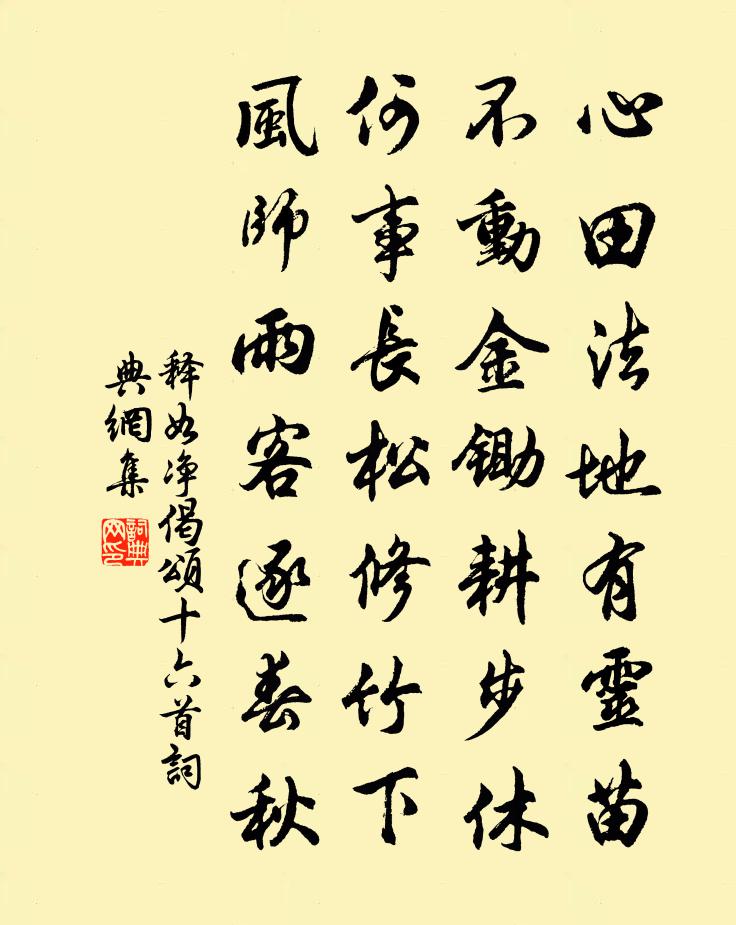 心田法地有靈苗
不動金鋤耕步休
何事長松修竹下
風師雨客逐春秋
释如净偈頌十六首詞
典網集
詞典
网印